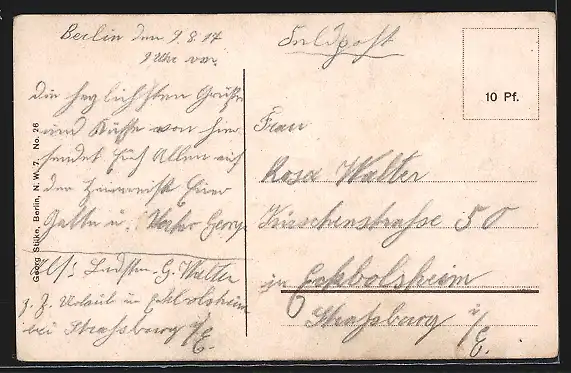 Berlin den 9.8.17
9 Uhr vor.
Die herzlichsten Grüße
und Küsse von hier
sendet Euch Allen auch
der Euer
Gatte u. Vater Georg
Abs: Ldstm. G. Walter
z. Z. Urlaub in Eckbolsheim
bei Strassburg i/E.
Georg Stilke, Berlin, N. W. 7. No. 26
Feldpost
10 Pf.
Frau
Rosa Walter
Kirschenstrasse 50
in Eckbolsheim
Strassburg i/E.